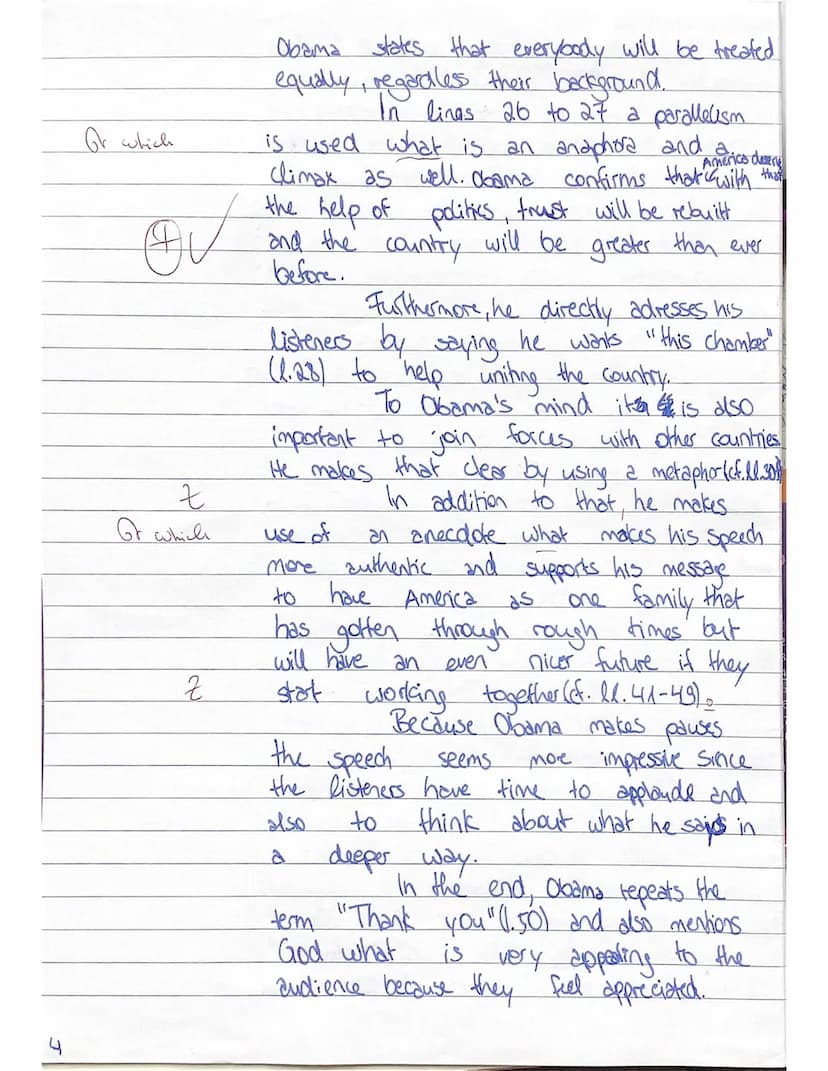 Obama states that everybody will be treated
equally, regardless their background.
In lines 26 to 27 a parallelism
Gr which
is used what is an anaphora and a
America deserves
climax as well. Obama confirms that with that
the help of politics, trust will be rebuilt
+ ✓
and the country will be greater than ever
before.
Furthermore, he directly adresses his
listeners by saying he wants "this chamber"
(l.28) to help uniting the country.
To Obama's mind it is also
important to join forces with other countries.
He makes that clear by using a metaphor (cf. ll. 30)
Z
In addition to that, he makes
Gr which
use of an anecdote what makes his speech
more authentic and supports his message
to have America as one family that
has gotten through rough times but
will have an even nicer future if they
Z
start working together (cf. ll. 41-49).
Because Obama makes pauses
the speech seems more impressive since
the listeners have time to applaude and
also to think about what he says in
a deeper way.
In the end, Obama repeats the
term "Thank you" (l.50) and also mentions
God what is very appealing to the
audience because they feel appreciated.
4